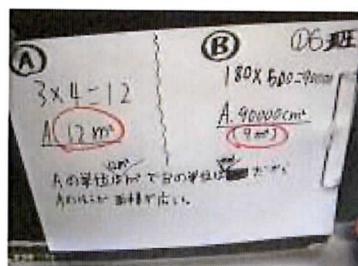 Ⓐ
3×4=12
A. 12m²
Ⓑ
180×500=90000
A. 90000cm²
(9m²)
12m²
Aの単位はm²でBの単位は
Aのほうが面積が広い。